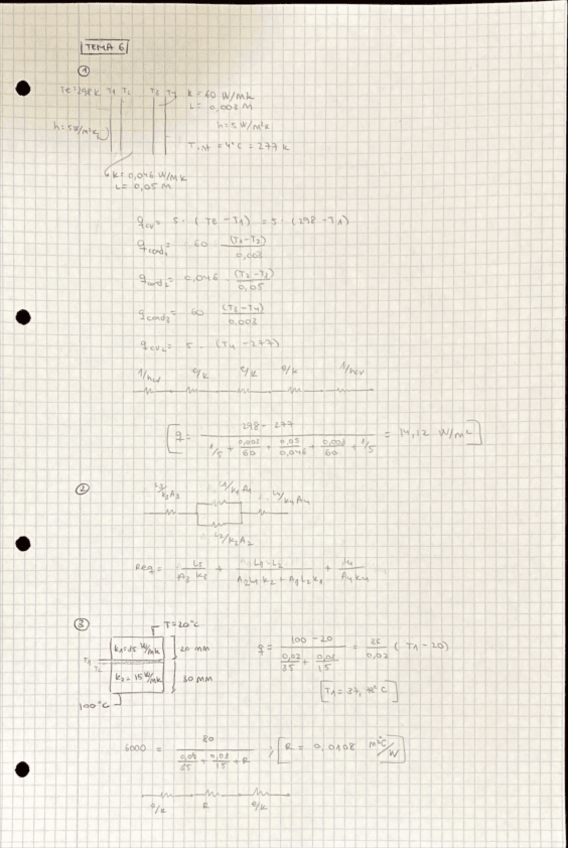 TEMA 6
1
Te=298K T1 T2 T3 T4 K = 60 W/mk
L = 0,003 M
h=5W/m²k h=5 W/m²k
T int = 4°C = 277 K
K = 0,046 W/mK
L = 0,05 M
qcv = 5 · (Te - T1) = 5 · (298 - T1)
qcond1 = 60 · (T1-T2) / 0,003
qcond2 = 0,046 · (T2-T3) / 0,05
qcond3 = 60 · (T3-T4) / 0,003
qcv2 = 5 · (T4 - 277)
1/hcv e/k e/k e/k 1/hcv
q = 298 - 277 / 1/5 + 0,003/60 + 0,05/0,046 + 0,003/60 + 1/5 = 14,12 W/m²
2
L3/k3A3 L1/k1A1 L4/k4A4
L2/k2A2
Req = L3/A3 k3 + L1·L2/A2L1k2 + A1L2k1 + L4/A4k4
3
T=20°C
20 mm
T1 T2
k2=15 W/mk 30 mm
100°C
q = 100 - 20 / =
(T1 - 20)
6000 = 80 /
+ R
R = 0,0108 m²°C/W
e/k R e/k